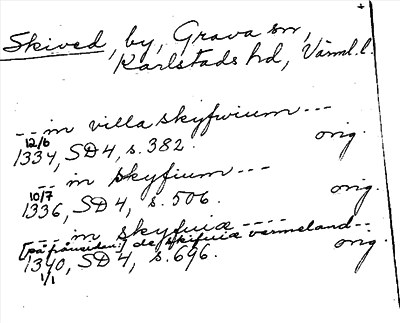 Skived, by, Grava sn,
Karlstads hd, Värml. l.
-- in villa skyfwium ---
12/6
1334, SD 4, s. 382. orig.
-- in skyfium ---
10/7
1336, SD 4, s. 506. orig.
--- in skyfuiæ ----
[på frånsidan: de skifuiæ vermeland--
1340, SD 4, s. 696. orig.
1/1